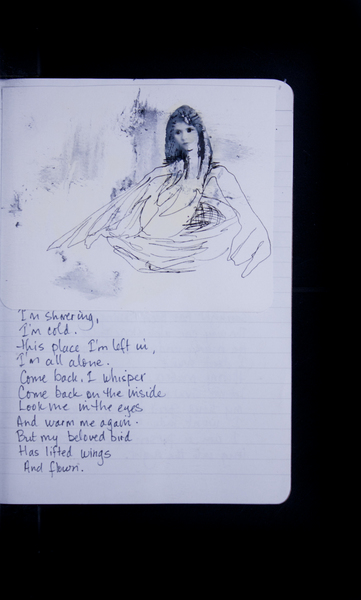 I'm shivering,
I'm cold.
this place I'm left in,
I'm all alone.
Come back, I whisper
Come back on the inside
Look me in the eyes
And warm me again.
But my beloved bird
Has lifted wings
And flown.